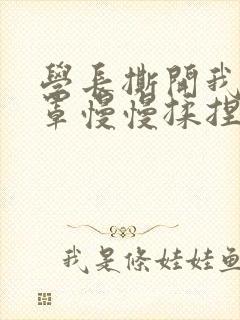 學長撕開我
罩慢慢揉捏
我是條娃娃魚